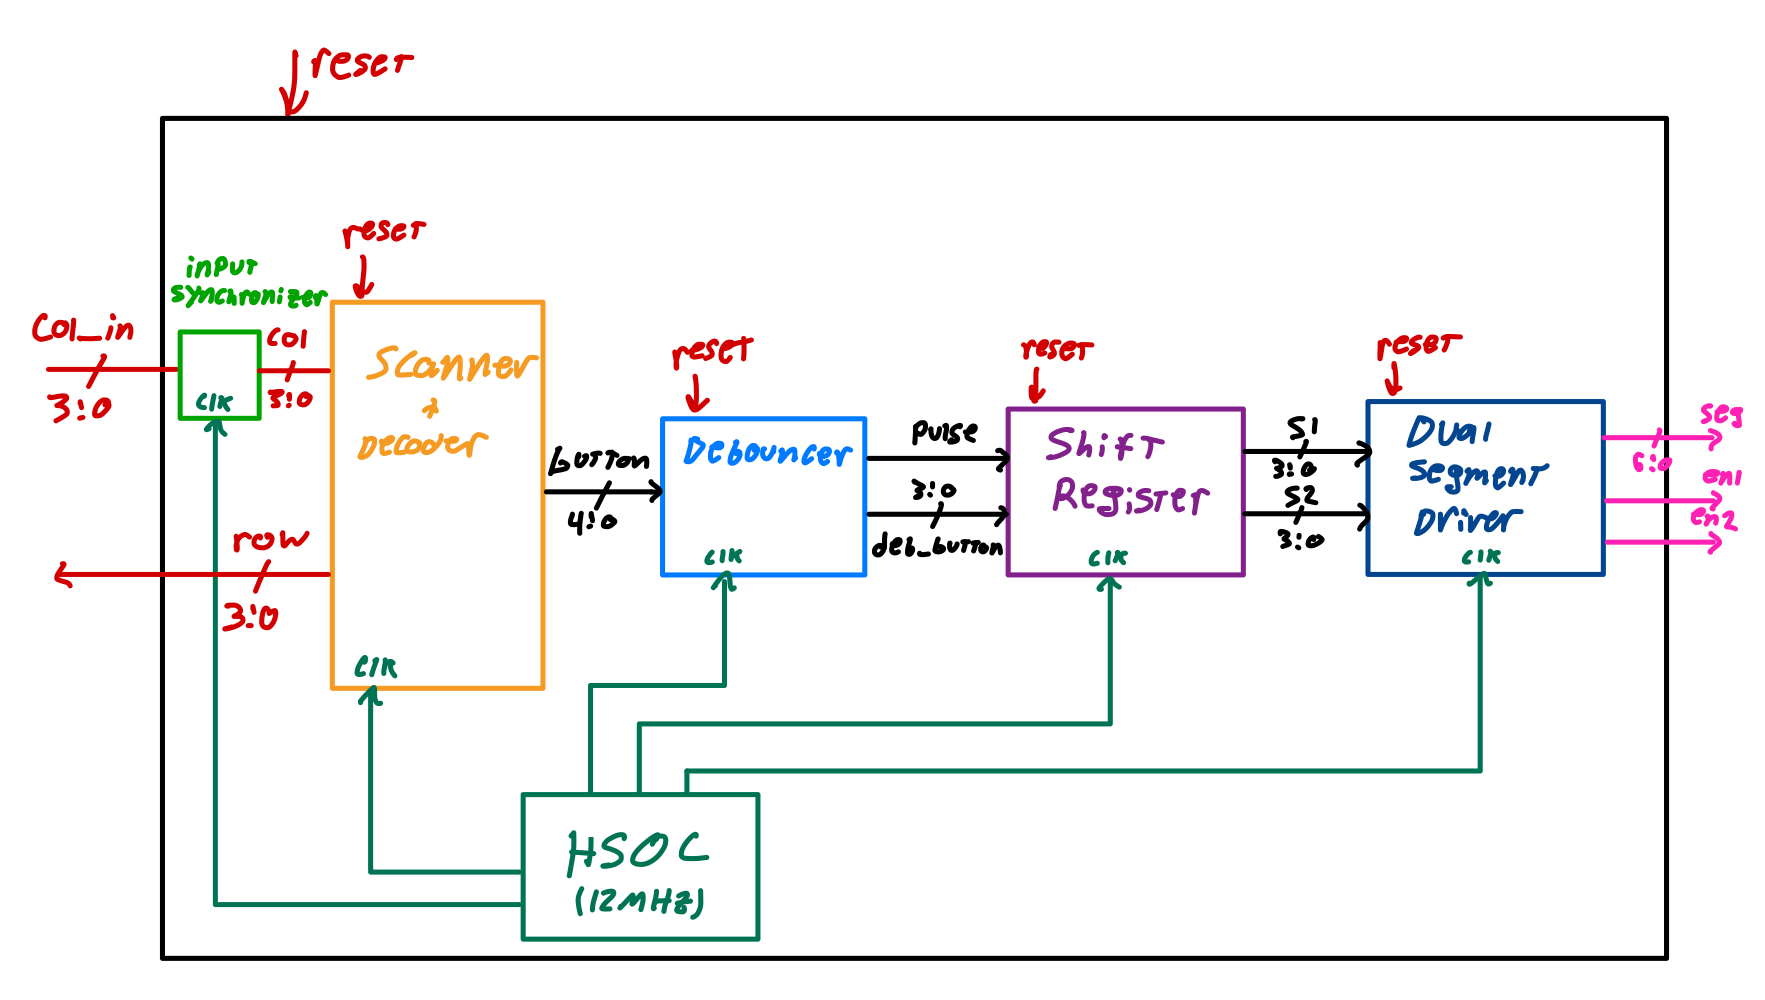 reset
reset
input
synchronizer
Col_in
3:0
col
3:0
clk
Scanner
+
Decoder
clk
row
3:0
button
4:0
reset
Debouncer
clk
pulse
3:0
deb_button
reset
Shift
Register
clk
S1
3:0
S2
3:0
reset
Dual
segment
Driver
clk
seg
6:0
en1
en2
HSOC
(12MHz)